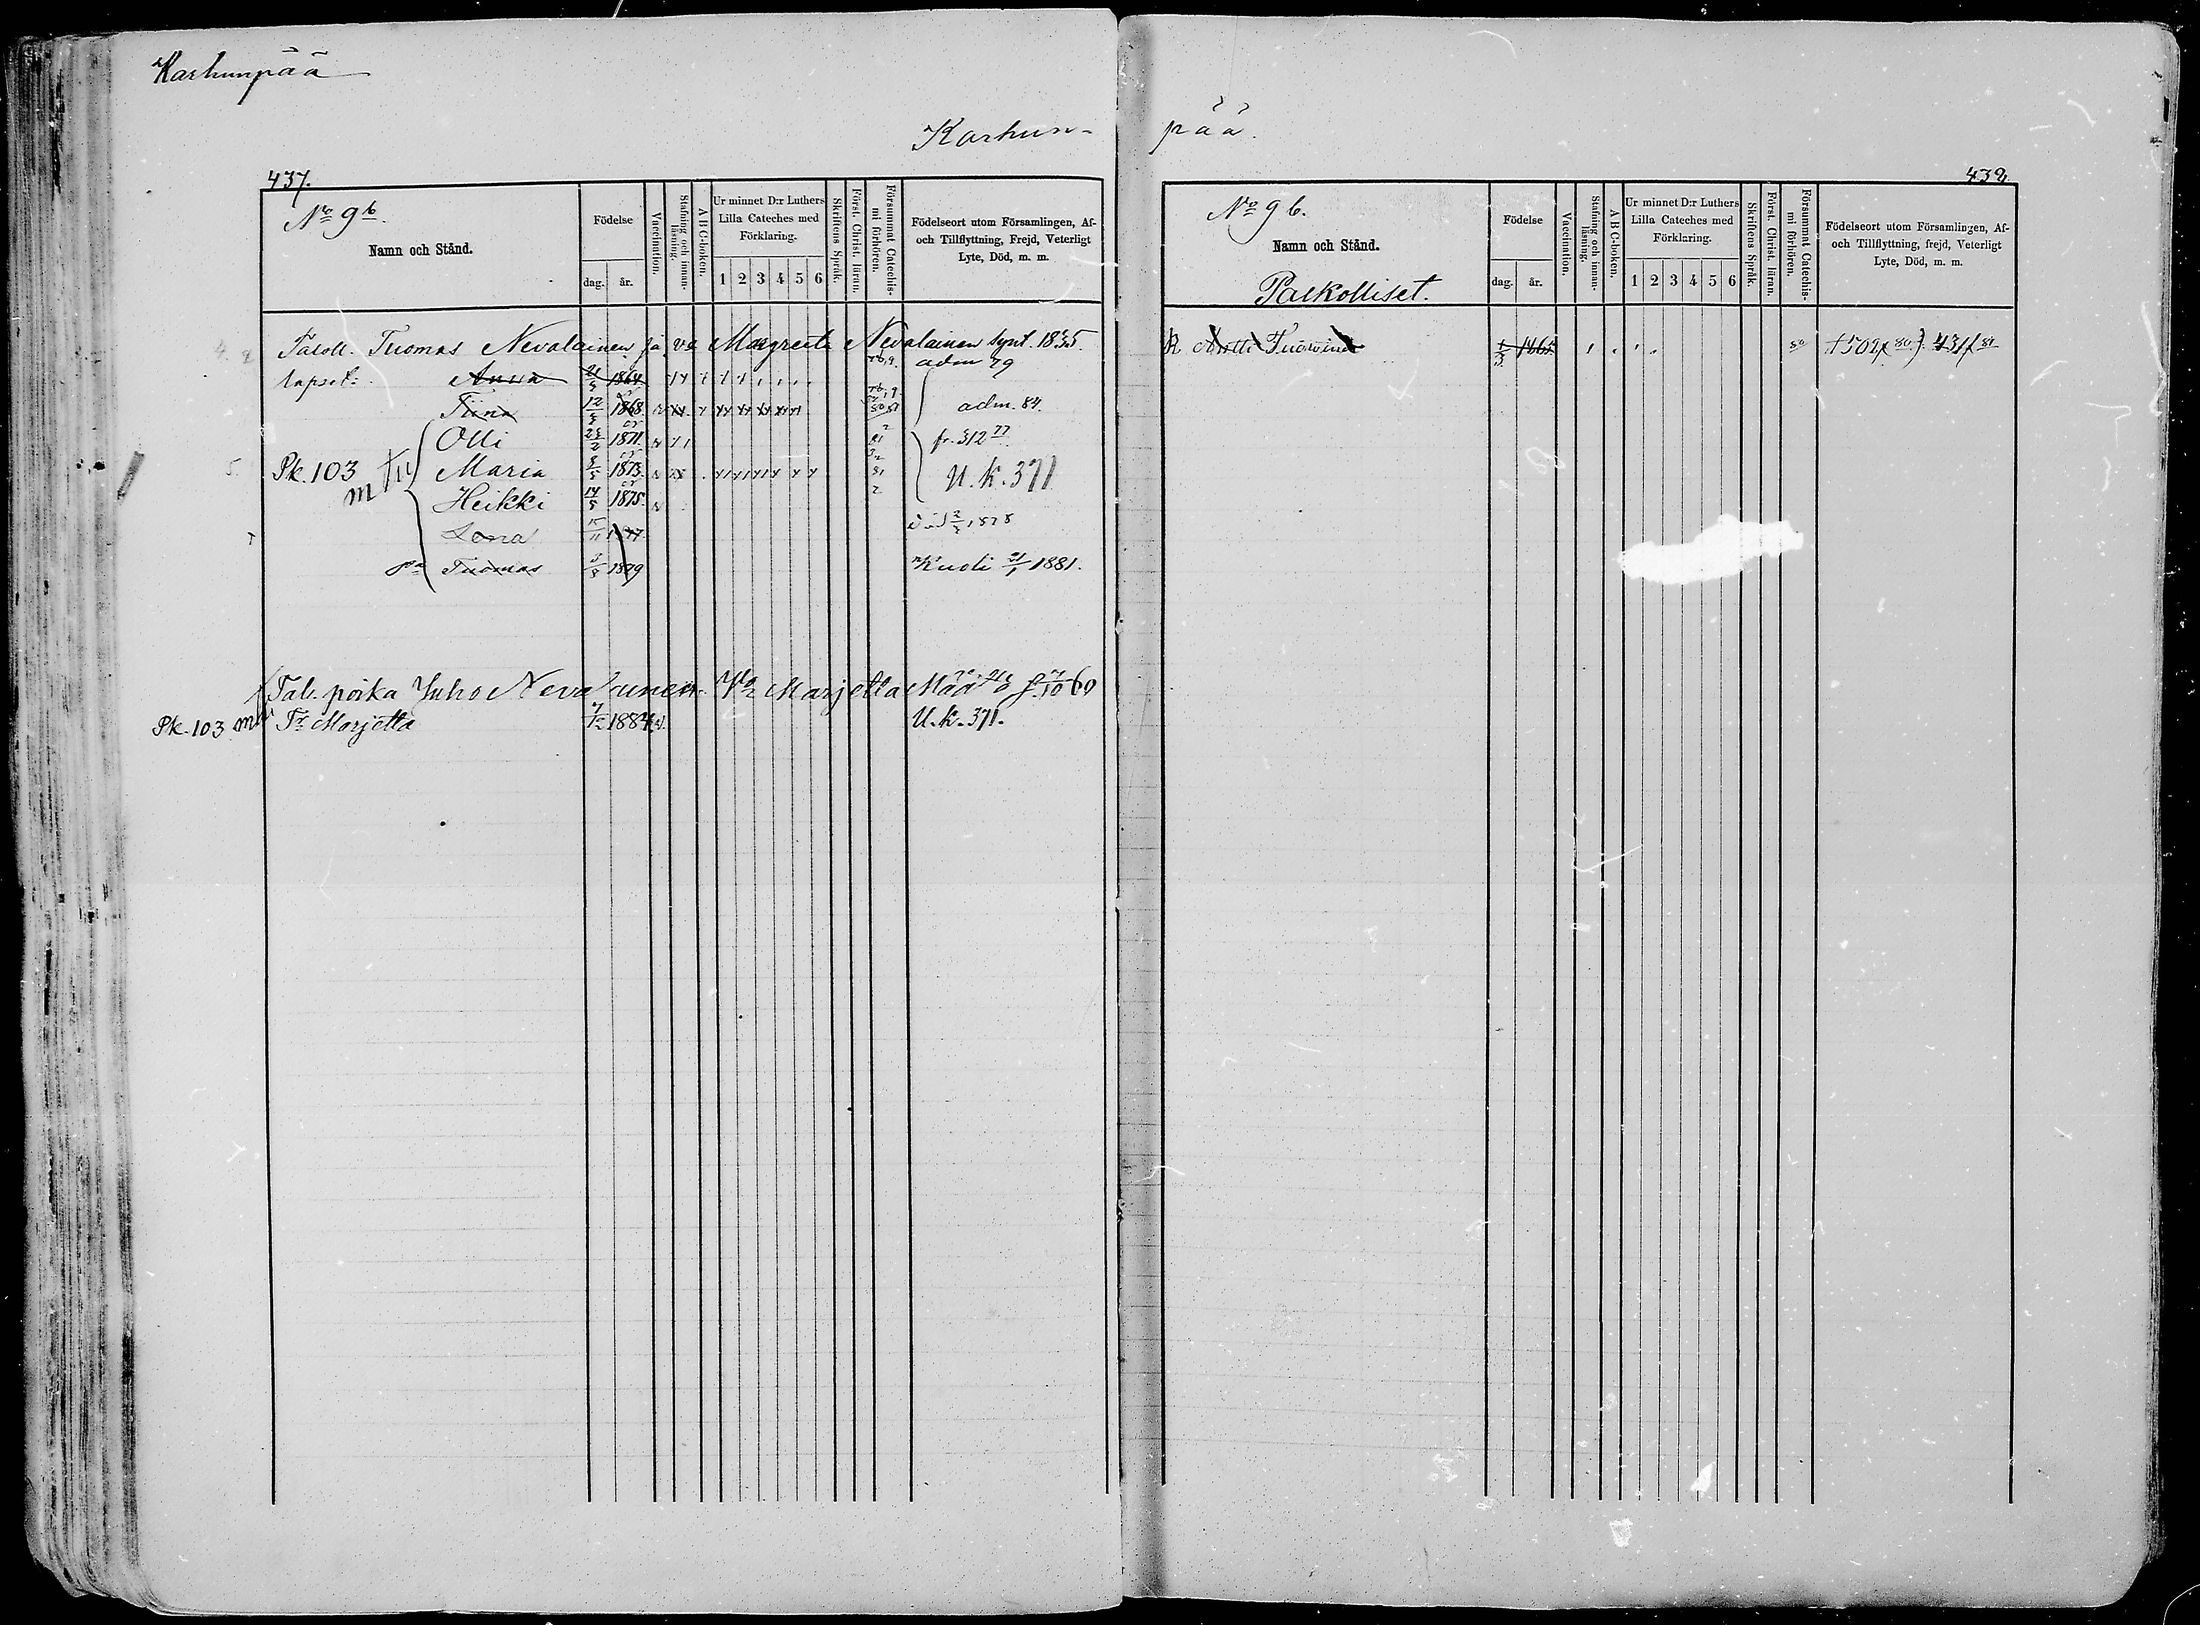 Karhunpää
Karhun-
437.
No 9 b.
Namn och Stånd.
Födelse
dag. år.
Vaccination.
Stafning och innan-
läsning.
A B C-boken.
Ur minnet D:r Luthers
Lilla Cateches med
Förklaring.
1 2 3 4 5 6
Skriftens Språk.
Först. Christ. läran.
Försummat Catechis-
mi förhören.
Födelseort utom Församlingen, Af-
och Tillflyttning, Frejd, Veterligt
Lyte, Död, m. m.
Taloll. Tuomas Nevalainen ja va Margreeta Nevalainen synt. 1835.
lapset: Anna 1864 adm 79
Tiina 12/5 1868 adm. 84.
Olli 1871 fr. 312 77
Pk. 103 Maria 1873 U.k. 371
m Heikki 14/5 1875
Lena 15/11 1877 1878
Tuomas 1879 Kuoli 1881.
Tal. poika Juho Nevalainen. Va Marjetta
Pk. 103 m Tr Marjetta 1884 U.k. 371.
pää.
432
No 9 b.
Namn och Stånd.
Palkolliset.
Födelse
dag. år.
Vaccination.
Stafning och innan-
läsning.
A B C-boken.
Ur minnet D:r Luthers
Lilla Cateches med
Förklaring.
1 2 3 4 5 6
Skriftens Språk.
Först. Christ. läran.
Försummat Catechis-
mi förhören.
Födelseort utom Församlingen, Af-
och Tillflyttning, frejd, Veterligt
Lyte, Död, m. m.
1865 80